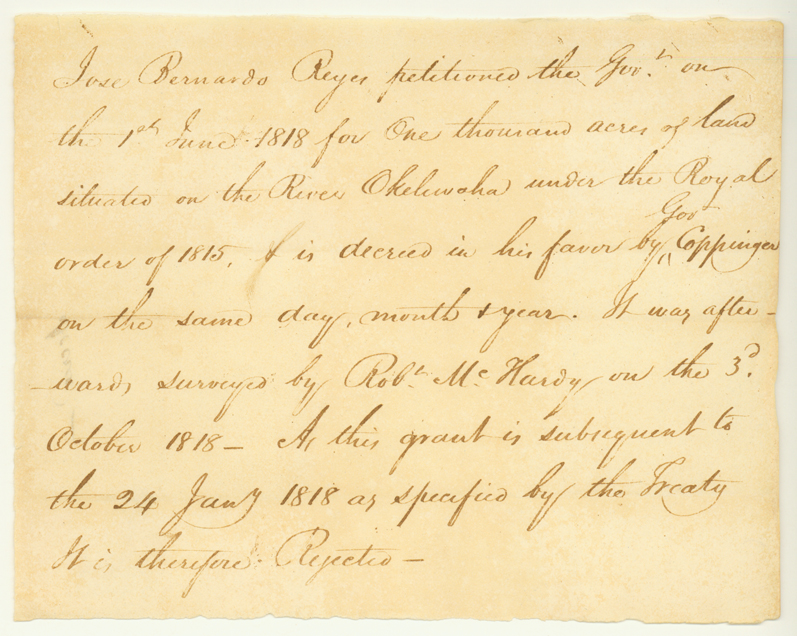 Jose Bernardo Reyes petitioned the Govt. on
the 1st June 1818 for One thousand acres of land
situated on the River Oklewaha under the Royal
order of 1815. & is decreed in his favor by ^Gov^ Coppinger
on the same day, month & year. It was after-
-wards surveyed by Robt. Mc Hardy on the 3d.
October 1818 — As this grant is subsequent to
the 24 Jany 1818 as specified by the Treaty
It is therefore Rejected —